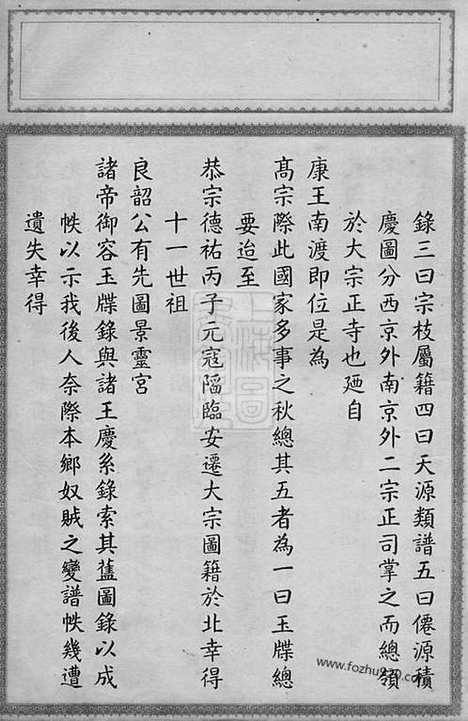 錄三曰宗枝屬籍四曰天源類譜五曰僊源積
慶圖分西京外南京外二宗正司掌之而總領
於大宗正寺也廼自
康王南渡即位是為
髙宗際此國家多事之秋總其五者為一曰玉牒總
要迨至
恭宗德祐丙子元寇陷臨安遷大宗圖籍於北幸得
十一世祖
良韶公有先圖景靈宮
諸帝御容玉牒錄與諸王慶系錄索其舊圖錄以成
帙以示我後人奈際本鄉奴賊之變譜帙幾遭
遺失幸得
www.fozhu920.com